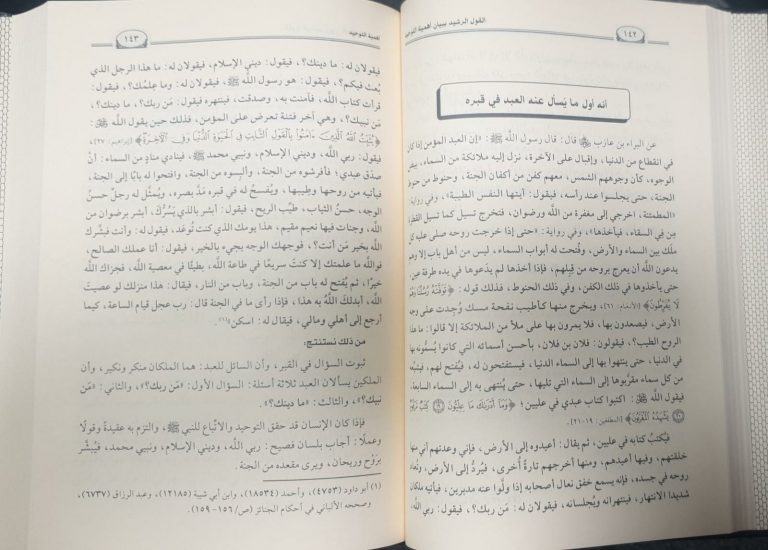 القول الرشيد ببيان أهمية التوحيد
١٤٢
أنه أول ما يُسأل عنه العبد في قبره
عن البراء بن عازب قال: قال رسول اللَّه ﷺ: «إن العبد المؤمن إذا كان
في انقطاع من الدنيا، وإقبال على الآخرة، نزل إليه ملائكة من السماء، بيض
الوجوه، كأن وجوههم الشمس، معهم كفن من أكفان الجنة، وحنوط من حنوط
الجنة، حتى يجلسوا عند رأسه، فيقول: أيتها النفس الطيبة»، وفي رواية:
«المطمئنة، اخرجي إلى مغفرة من اللَّه ورضوان، فتخرج تسيل كما تسيل القطرة
مِن فِي السقاء، فيأخذها»، وفي رواية: «حتى إذا خرجت روحه صلى عليه كل
ملك بين السماء والأرض، وفُتحت له أبواب السماء، ليس من أهل باب إلا وهم
يدعون اللَّه أن يعرج بروحه من قِبلهم، فإذا أخذها لم يدَعوها في يده طرفة عين،
حتى يأخذوها في ذلك الكفن، وفي ذلك الحنوط، فذلك قوله: ﴿تَوَفَّتْهُ رُسُلُنَا وَهُمْ
لَا يُفَرِّطُونَ﴾ [الأنعام: ٦١]، ويخرج منها كأطيب نفحة مسك وُجدت على وجه
الأرض، فيصعدون بها، فلا يمرون بها على ملأ من الملائكة إلا قالوا: ما هذا
الروح الطيب؟، فيقولون: فلان بن فلان، بأحسن أسمائه التي كانوا يُسمُّونه بها
في الدنيا، حتى ينتهوا بها إلى السماء الدنيا، فيستفتحون له، فيُفتح لهم، فيشيِّعه
من كل سماء مقرَّبوها إلى السماء التي تليها، حتى يُنتهى به إلى السماء السابعة،
فيقول اللَّه: اكتبوا كتاب عبدي في عليين؛ ﴿وَمَا أَدْرَاكَ مَا عِلِّيُّونَ ۝ كِتَابٌ مَّرْقُومٌ
۝ يَشْهَدُهُ الْمُقَرَّبُونَ﴾ [المطففين: ١٩-٢١].
فيُكتبُ كتابه في عليين، ثم يقال: أعيدوه إلى الأرض، فإني وعدتهم أني منها
خلقتهم، وفيها أعيدهم، ومنها أخرجهم تارةً أُخرى، فيُردُّ إلى الأرض، وتُعاد
روحه في جسده، فإنه يسمع خفق نعال أصحابه إذا ولَّوا عنه مدبرين، فيأتيه ملكان
شديدا الانتهار، فينتهرانه ويُجلسانه، فيقولان له: مَن ربك؟، فيقول: ربي اللَّه،
أهمية التوحيد
١٤٣
فيقولان له: ما دينك؟، فيقول: ديني الإسلام، فيقولان له: ما هذا الرجل الذي
بُعث فيكم؟، فيقول: هو رسول اللَّه ﷺ، فيقولان له: وما عِلمُك؟، فيقول:
قرأت كتاب اللَّه، فآمنت به، وصدقت، فينتهره فيقول: مَن ربك؟، ما دينك؟،
مَن نبيك؟، وهي آخر فتنة تعرض على المؤمن، فذلك حين يقول اللَّه:
﴿يُثَبِّتُ اللَّهُ الَّذِينَ آمَنُوا بِالْقَوْلِ الثَّابِتِ فِي الْحَيَاةِ الدُّنْيَا وَفِي الْآخِرَةِ﴾ [إبراهيم: ٢٧]،
فيقول: ربي اللَّه، وديني الإسلام، ونبيي محمد ﷺ، فينادي منادٍ من السماء: أنْ
صدَق عبدي؛ فأفرشوه من الجنة، وألبسوه من الجنة، وافتحوا له بابًا إلى الجنة،
فيأتيه من روحها وطِيبها، ويُفسح له في قبره مدَّ بصره، ويُمثَّل له رجلٌ حسنُ
الوجه، حسنُ الثياب، طيِّب الريح، فيقول: أبشر بالذي يَسُرُّك، أبشر برضوان من
اللَّه، وجنات فيها نعيم مقيم، هذا يومك الذي كنت تُوعَد، فيقول له: وأنت فبشَّرك
اللَّه بخير مَن أنت؟، فوجهك الوجه يجيء بالخير، فيقول: أنا عملك الصالح،
فواللَّه ما علمتك إلا كنتَ سريعًا في طاعة اللَّه، بطيئًا في معصية اللَّه، فجزاك اللَّه
خيرًا، ثم يُفتح له باب من الجنة، وباب من النار، فيقال: هذا منزلك لو عصيتَ
اللَّه، أبدلكَ اللَّهُ به هذا، فإذا رأى ما في الجنة قال: رب عجل قيام الساعة، كيما
أرجع إلى أهلي ومالي، فيقال له: اسكن»(١).
من ذلك نستنتج:
ثبوت السؤال في القبر، وأن السائل للعبد: هما الملكان منكر ونكير، وأن
الملكين يسألان العبد ثلاثة أسئلة: السؤال الأول: «مَن ربك؟»، والثاني: «مَن
نبيك؟»، والثالث: «ما دينك؟».
فإذا كان الإنسان قد حقق التوحيد والاتِّباع للنبي ﷺ، والتزم به عقيدةً وقولًا
وعملًا: أجاب بلسان فصيح: ربي اللَّه، وديني الإسلام، ونبيي محمد، فيُبشَّر
برَوْح وريحان، ويرى مقعده من الجنة.
(١) أبو داود (٤٧٥٣)، وأحمد (١٨٥٣٤)، وابن أبي شيبة (١٢١٨٥)، وعبد الرزاق (٦٧٣٧)،
وصححه الألباني في أحكام الجنائز (ص/ ١٥٦- ١٥٩).